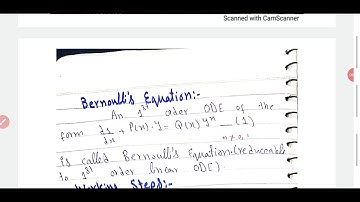 Scanned with CamScanner
Bernoulli's Equation:-
An 1st order ODE of the
form dy/dx + P(x)·y = Q(x) y^n — (1)
n ≠ 0,1
Is called Bernoulli's Equation (reduceable
to 1st order linear ODE).
Working Steps:-